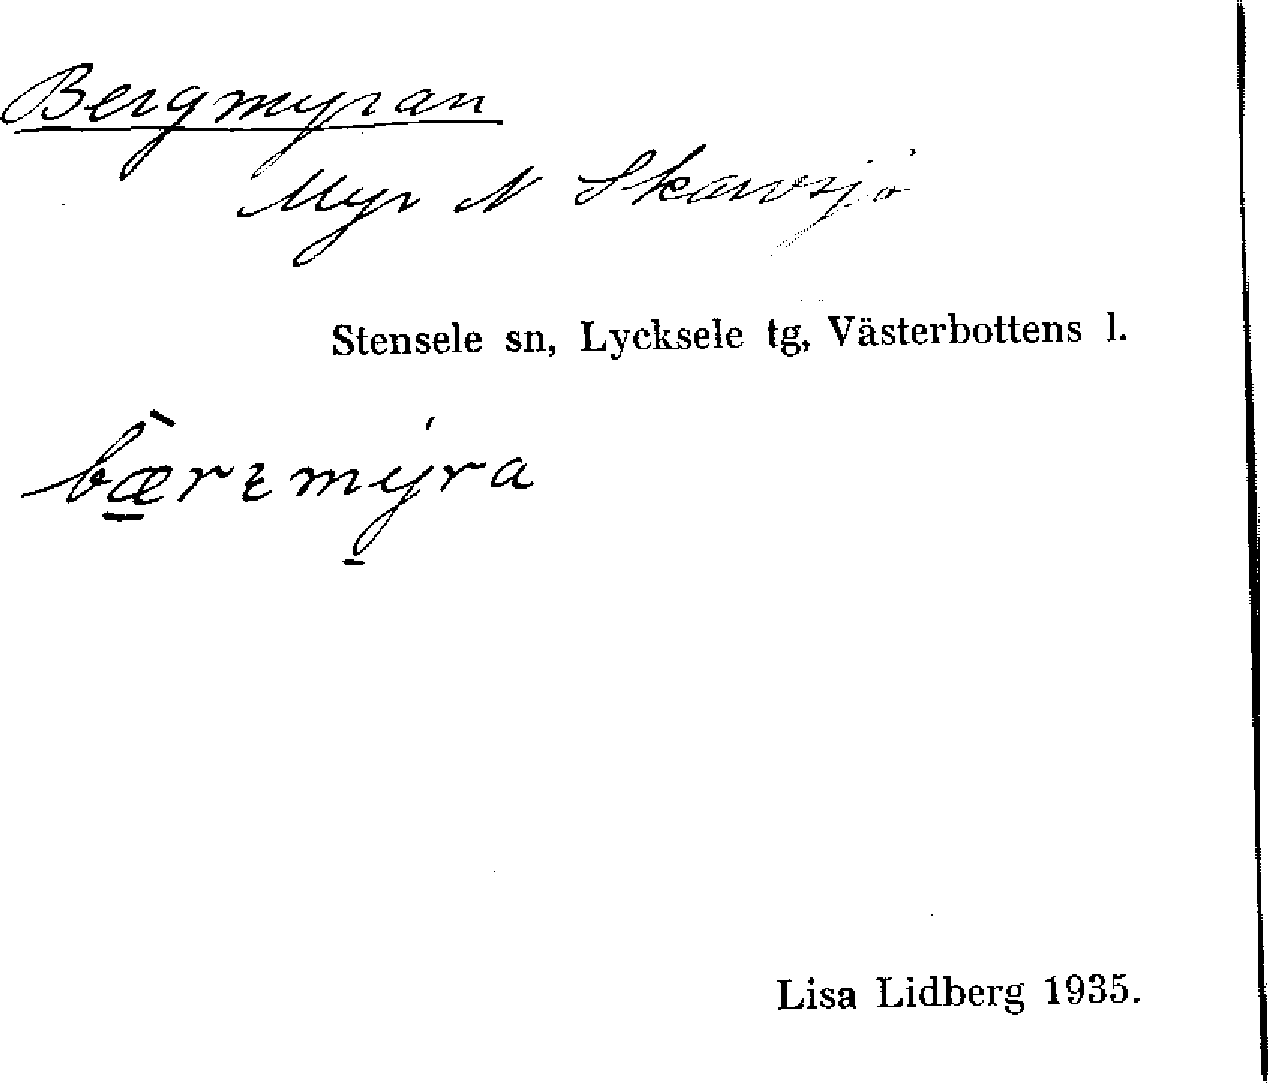 Bergmyran
Myr N Skarvsjö
Stensele sn, Lycksele tg, Västerbottens l.
bærɛmyra
Lisa Lidberg 1935.